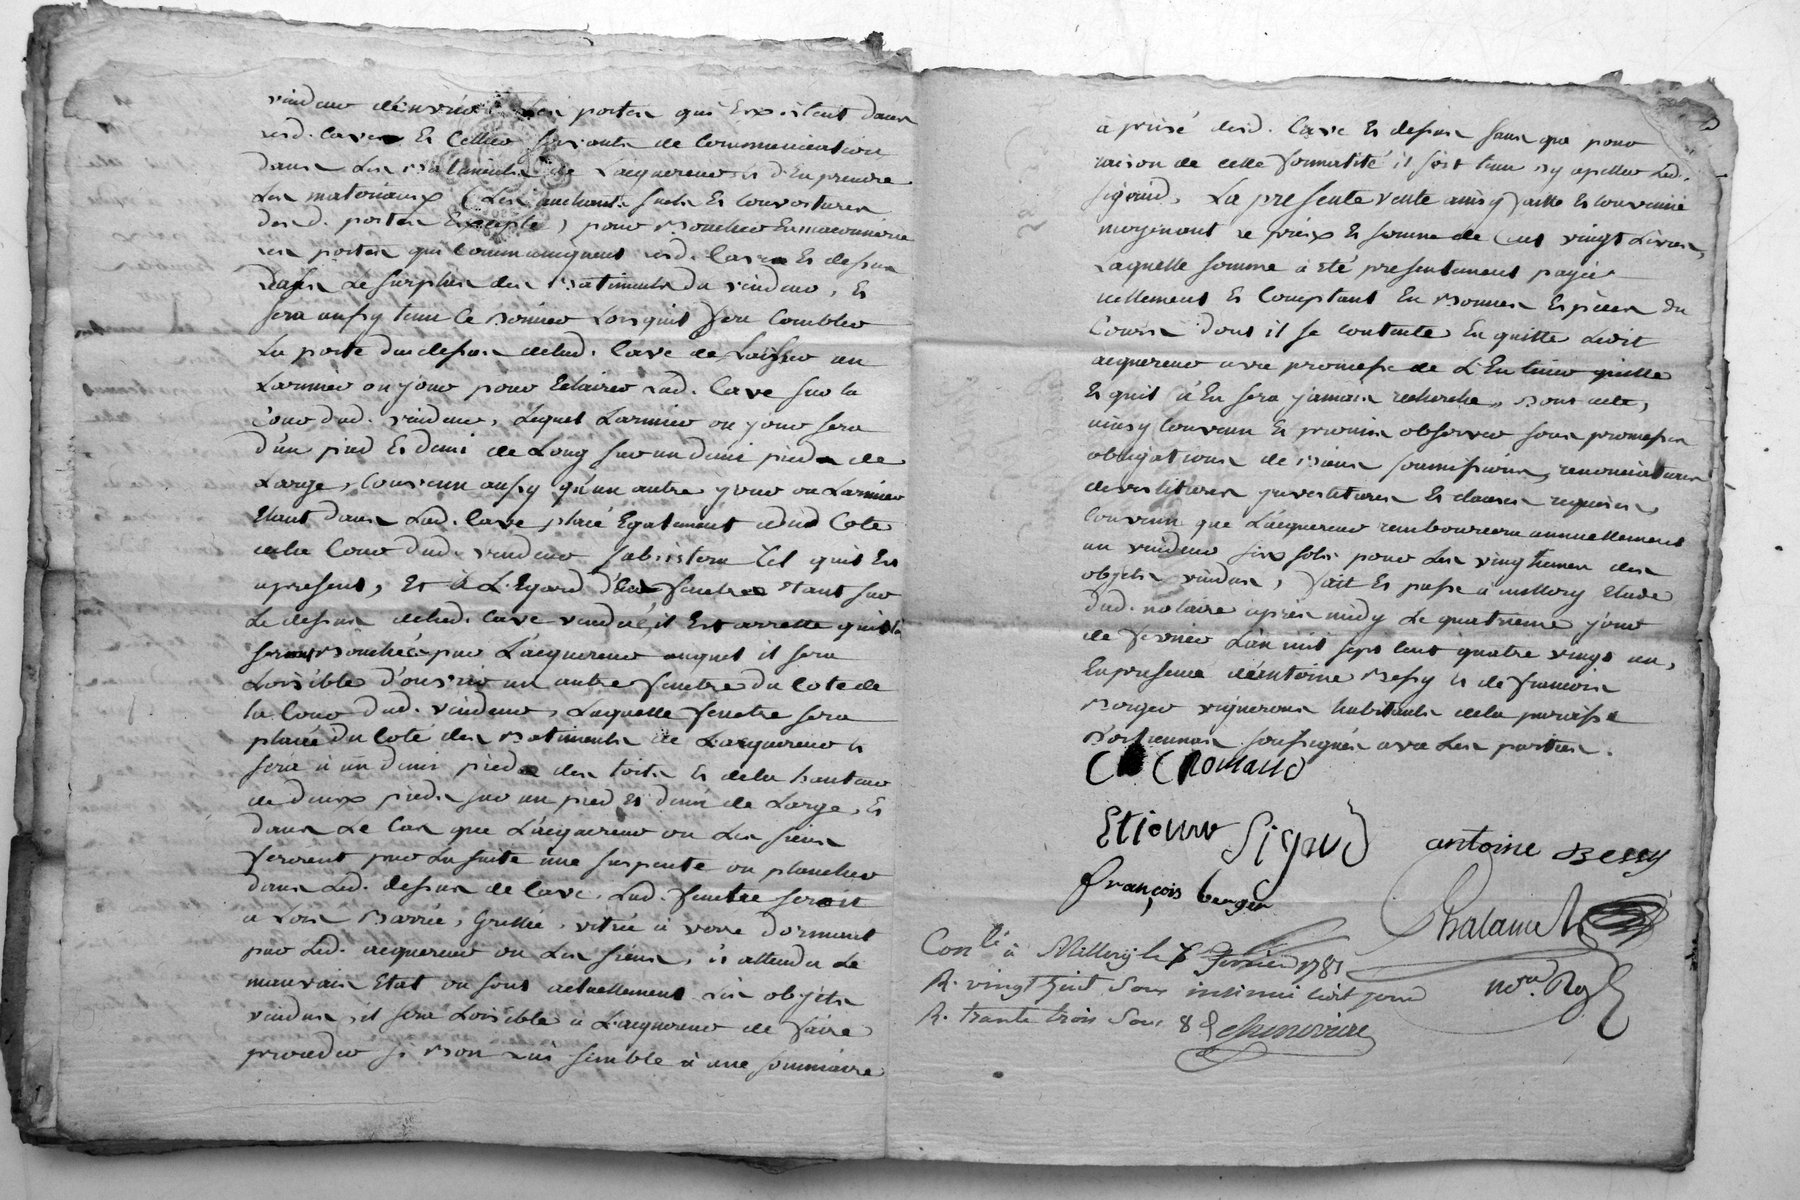 vendeur d'enlever les portes qui existent dans
lesd. caves et cellier servants de communication
dans les batiments de l'acquereur et d'en prendre
les materiaux (les anchants seuls et couvertures
desd. portes excepté) pour boucher en maconnerie
les portes qui communiquent lesd. caves et dessus
dans le surplus des batiments du vendeur, et
sera aussy tenu ce dernier lorsquil fera combler
la porte du dessus de lad. cave de laisser un
larmier ou jour pour eclairer lad. cave sur la
cour dud. vendeur, lequel larmier ou jour sera
d'un pied et demi de long sur un demi pied de
large, convenu aussy qu'un autre jour ou larmier
etant dans lad. cave, placé egalement du coté
de la cour dud. vendeur subsistera tel quil est
apresent, et à l'egard d'une fenetre etant sur
le dessus de lad. cave vendue, il est arrette quelle
sera bouchée par l'acquereur auquel il sera
loisible d'ouvrir un autre fenetre du coté de
la cour dud. vendeur, laquelle fenetre sera
placée du coté des batiments de l'acquereur et
sera à un demi pied des toits et de la hauteur
de deux pieds sur un pied et demi de large, et
dans le cas que l'acquereur ou les siens
feroient par la suite une suspente ou plancher
dans led. dessus de cave, lad. fenetre seroit
à lors barrée, grillée, vitrée à verre dormant
par led. acquereur ou les siens, et attendu le
mauvais etat ou sont actuellement les objets
vendus, il sera loisible à l'acquereur de faire
proceder si bon luis semble à une sommaire
à prisé desd. cave et dessus sans que pour
raison de cette formalité il soit tenu d'y apeller led.
sigaud. La presente vente ainsy faitte et convenue
moyenant le prix et somme de cent vingt livres,
laquelle somme à eté presentement payée
reellement et comptant en bonnes especes du
cours dont il se contente en quitte ledit
acquereur avec promesse de l'en tenir quitte
et quil n'en sera jamais recherché, dont acte,
ainsy convenu et promis observer sous promesses
obligations de biens soumissions, renonciations
devestitures investitures et clauses requises
convenu que l'acquereur remboursera annuellement
au vendeur six sols pour les vingtiemes des
objets vendus, fait et passé à millery etude
dud. notaire après midy le quatrieme jour
de fevrier l'an mil sept cent quatre vingt un,
en presence d'antoine Bessy et de francois
Berger vignerons habitants de la paroisse
soussignés avec les parties.
Etienne Sigaud
antoine Bessy
françois berger
Con.lé à Millery le 7 Fevrier 1781
R. vingt huit sous insinué led. jour
R. trante trois sous